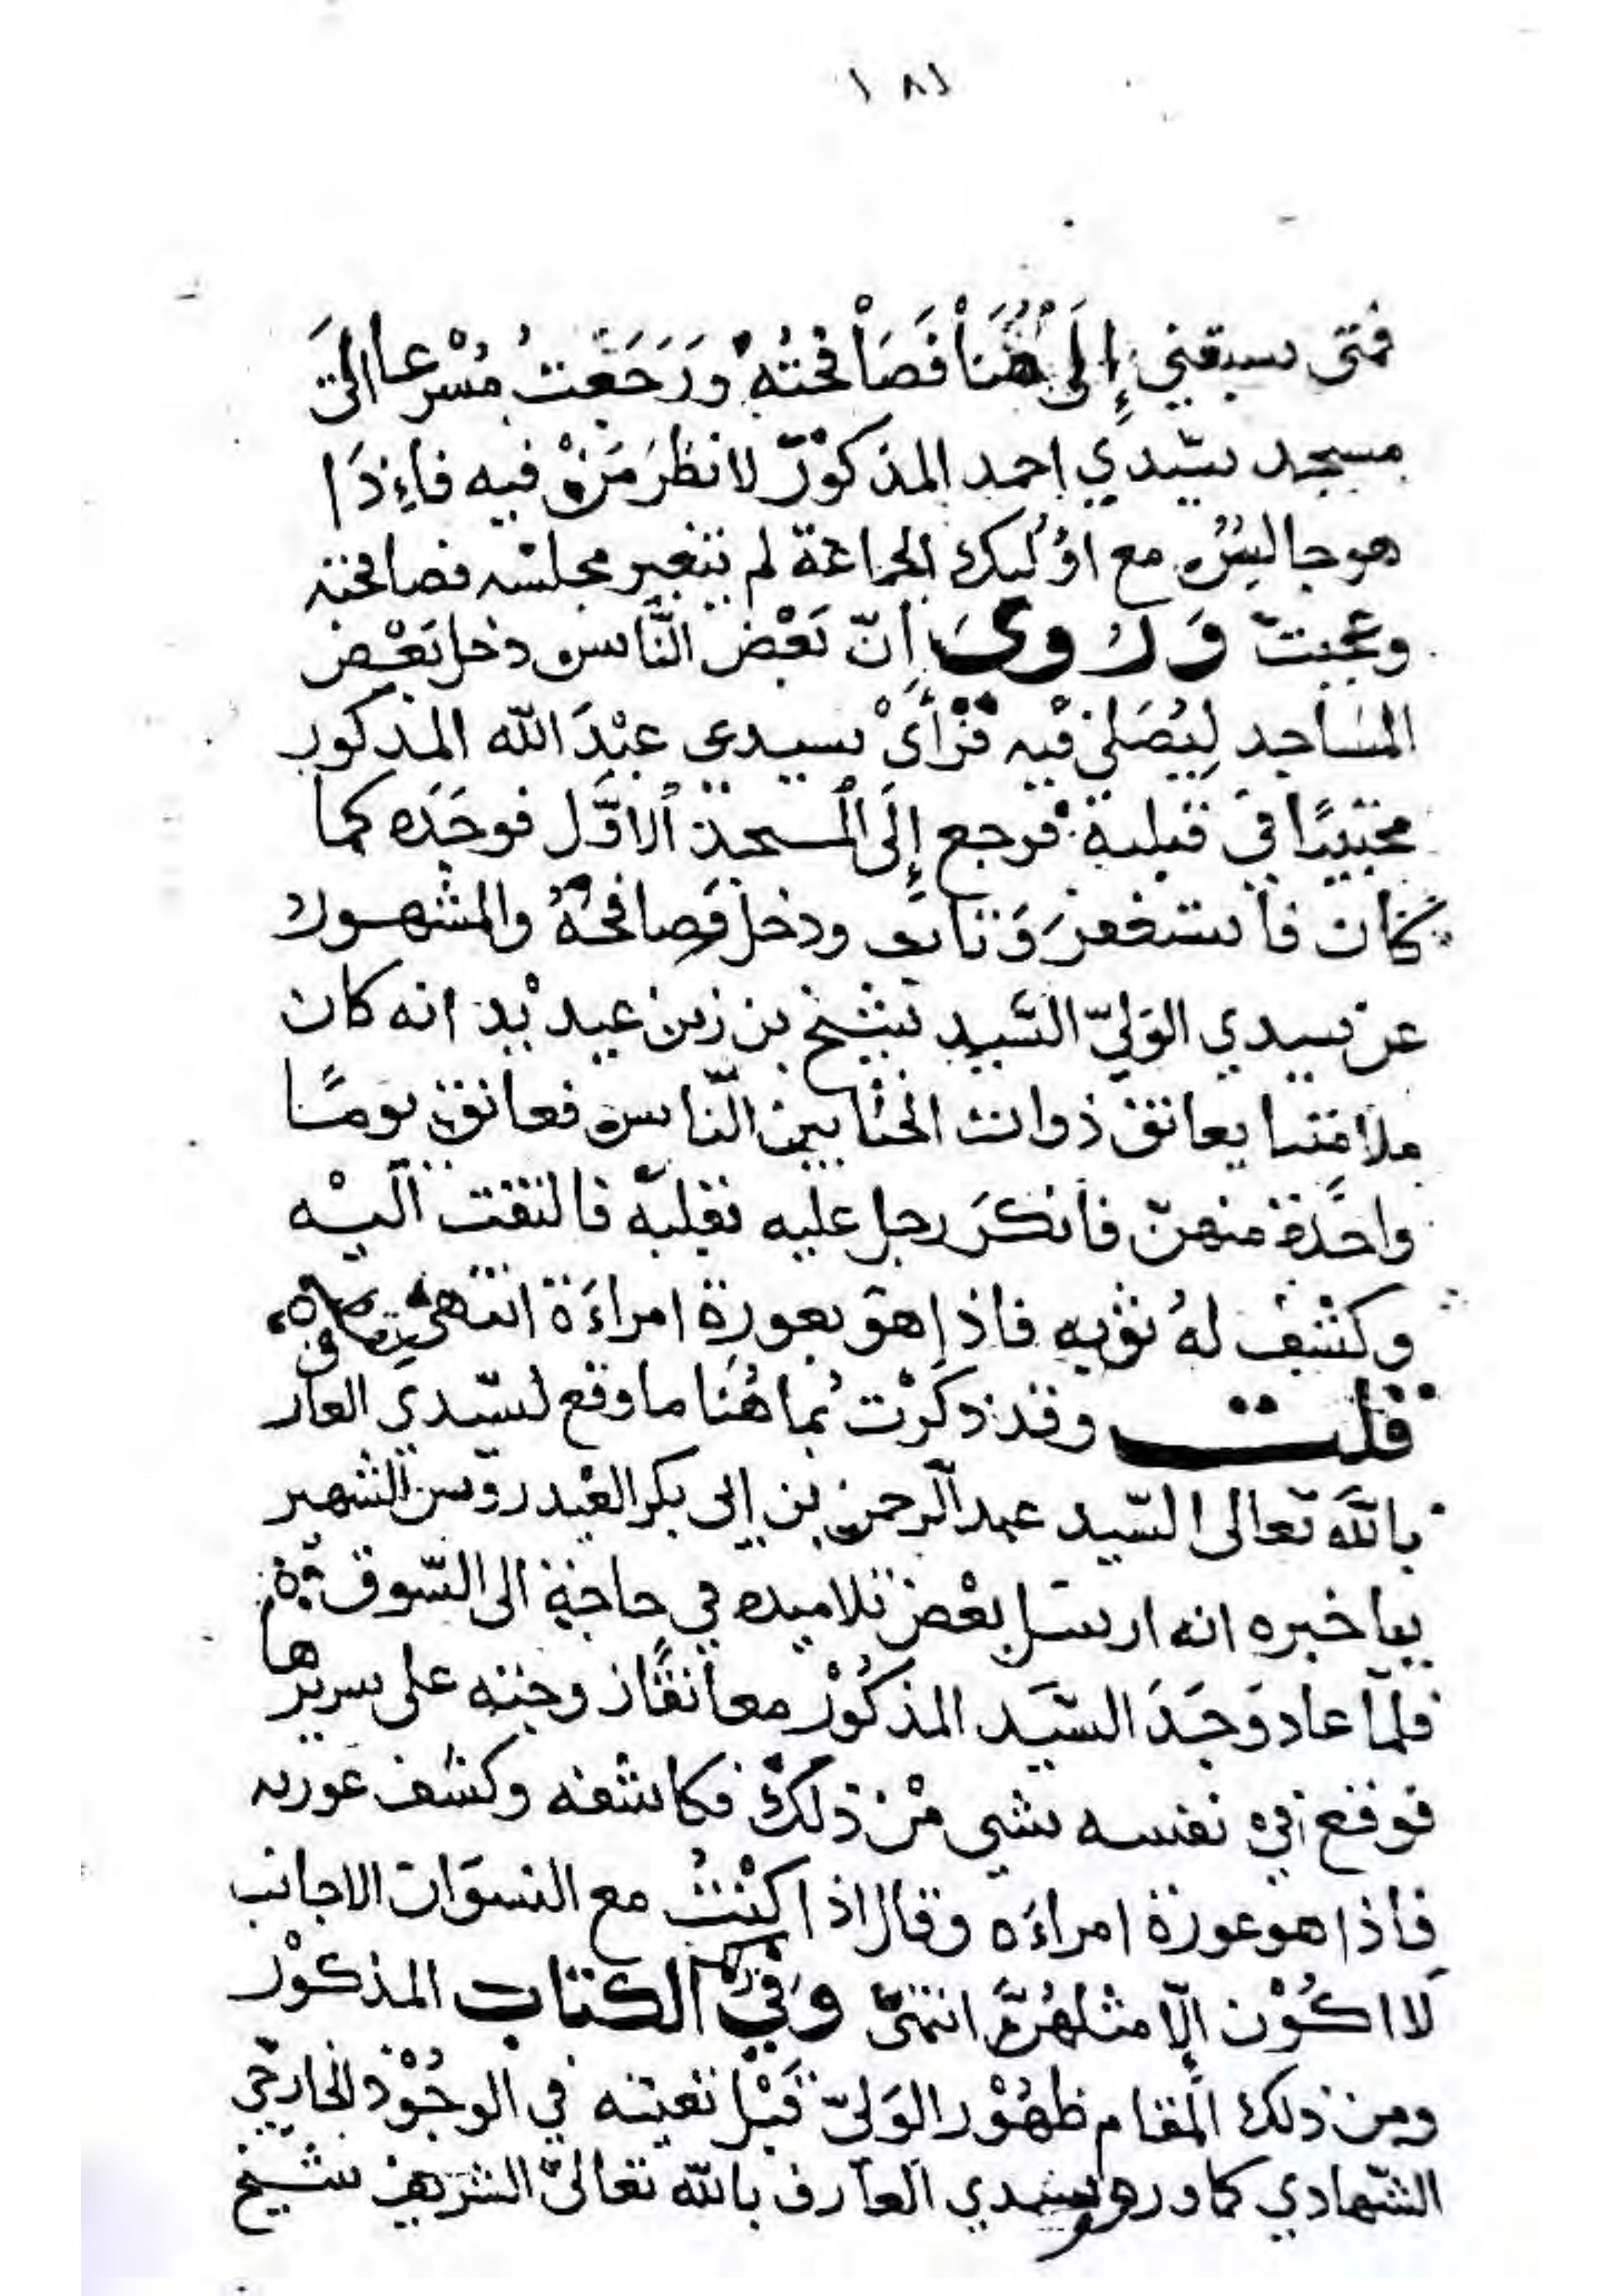 ١٨١
فمتى سبقني إِلَى هُنَا فَصَافحْتُهُ وَرَجَعْتُ مُسْرِعا الى
مسجد سيّدي احمد المذكوْرّ لانظُرَ مَنْ فيه فاءِذَا
هو جالسٌ مع اوُلَيك الجماعة لم يتغير مجلسه فصافحته
وعجبت وَرُوِيَ اِنّ بَعْض النَّاس دخل بَعْض
المسَاجد لِيُصَلي فيْه فرَأَىْ سيدي عبْدَ الله المذكور
محتبيًا في قبليه فرجع إِلَى الْمسجد الاوَّل فوجَدَه كما
كان فاستغفرَ وَتاب ودخل فصافحهُ والمشهور
عن سيدي الوَليّ السَّيد شيخ بن زين عيديْد انه كان
ملامتيا يعانق ذوات الخنا بين النّاس فعانق يومًا
واحدَة منهنّ فانكرَ رجل عليه بقلبه فالتفت اليْه
وكشف لهُ ثوْبه فاذا هوَ بعورة امراءَة انتهى
قلت وقد ذكَرْت بُما هُنَا ما وقع لسيّدي العار
باللَّه تعالى السّيد عبد الرحمن بن ابى بكر العيْدروس الشهير
بباخبره انه ارسل بعْض تلاميده في حاجة الى السّوق
فلمّا عاد وَجَدَ السّيَد المذكُوْر معانقًا زوجته على سريرها
فوقع في نفسه شي مْن ذلك فكاشفه وكشف عورته
فاذا هو عورة امراءَه وقال اذا كنْتُ مع النسوَان الاجانب
لا اكُوْن إلّا مثلهُنَّ انتهى وَفي الكتاب المذكوْر
ومن ذلك المقام ظهُوْر الوَليّ قَبْل تعيّنه في الوجُوْد الخارجي
الشّهادي كما ورد لسيدي العارف بالله تعالىَ الشريف شيخ